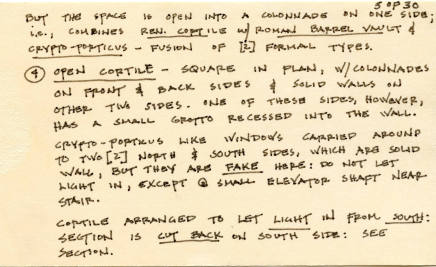 5 OF 30
BUT THE SPACE IS OPEN INTO A COLONNADE ON ONE SIDE;
i.e., COMBINES REN. CORTILE w/ ROMAN BARREL VAULT &
CRYPTO-PORTICUS - FUSION OF [2] FORMAL TYPES.
④ OPEN CORTILE - SQUARE IN PLAN, W/ COLONNADES
ON FRONT & BACK SIDES & SOLID WALLS ON
OTHER TWO SIDES. ONE OF THESE SIDES, HOWEVER,
HAS A SMALL GROTTO RECESSED INTO THE WALL.
CRYPTO-PORTICUS LIKE WINDOWS CARRIED AROUND
TO TWO [2] NORTH & SOUTH SIDES, WHICH ARE SOLID
WALL, BUT THEY ARE FAKE HERE: DO NOT LET
LIGHT IN, EXCEPT @ SMALL ELEVATOR SHAFT NEAR
STAIR.
CORTILE ARRANGED TO LET LIGHT IN FROM SOUTH:
SECTION IS CUT BACK ON SOUTH SIDE: SEE
SECTION.